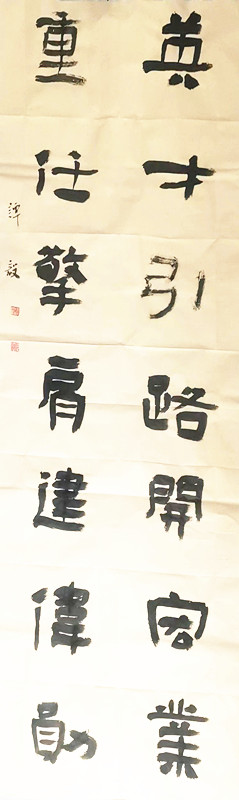 英才引路開宏業
重任擎肩建偉勛
譚毅